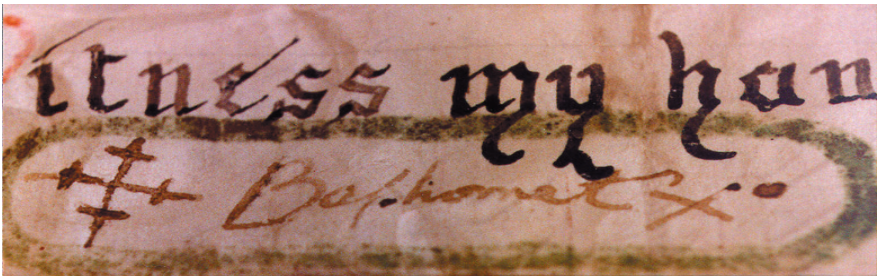 itness my han
Baphomet X°